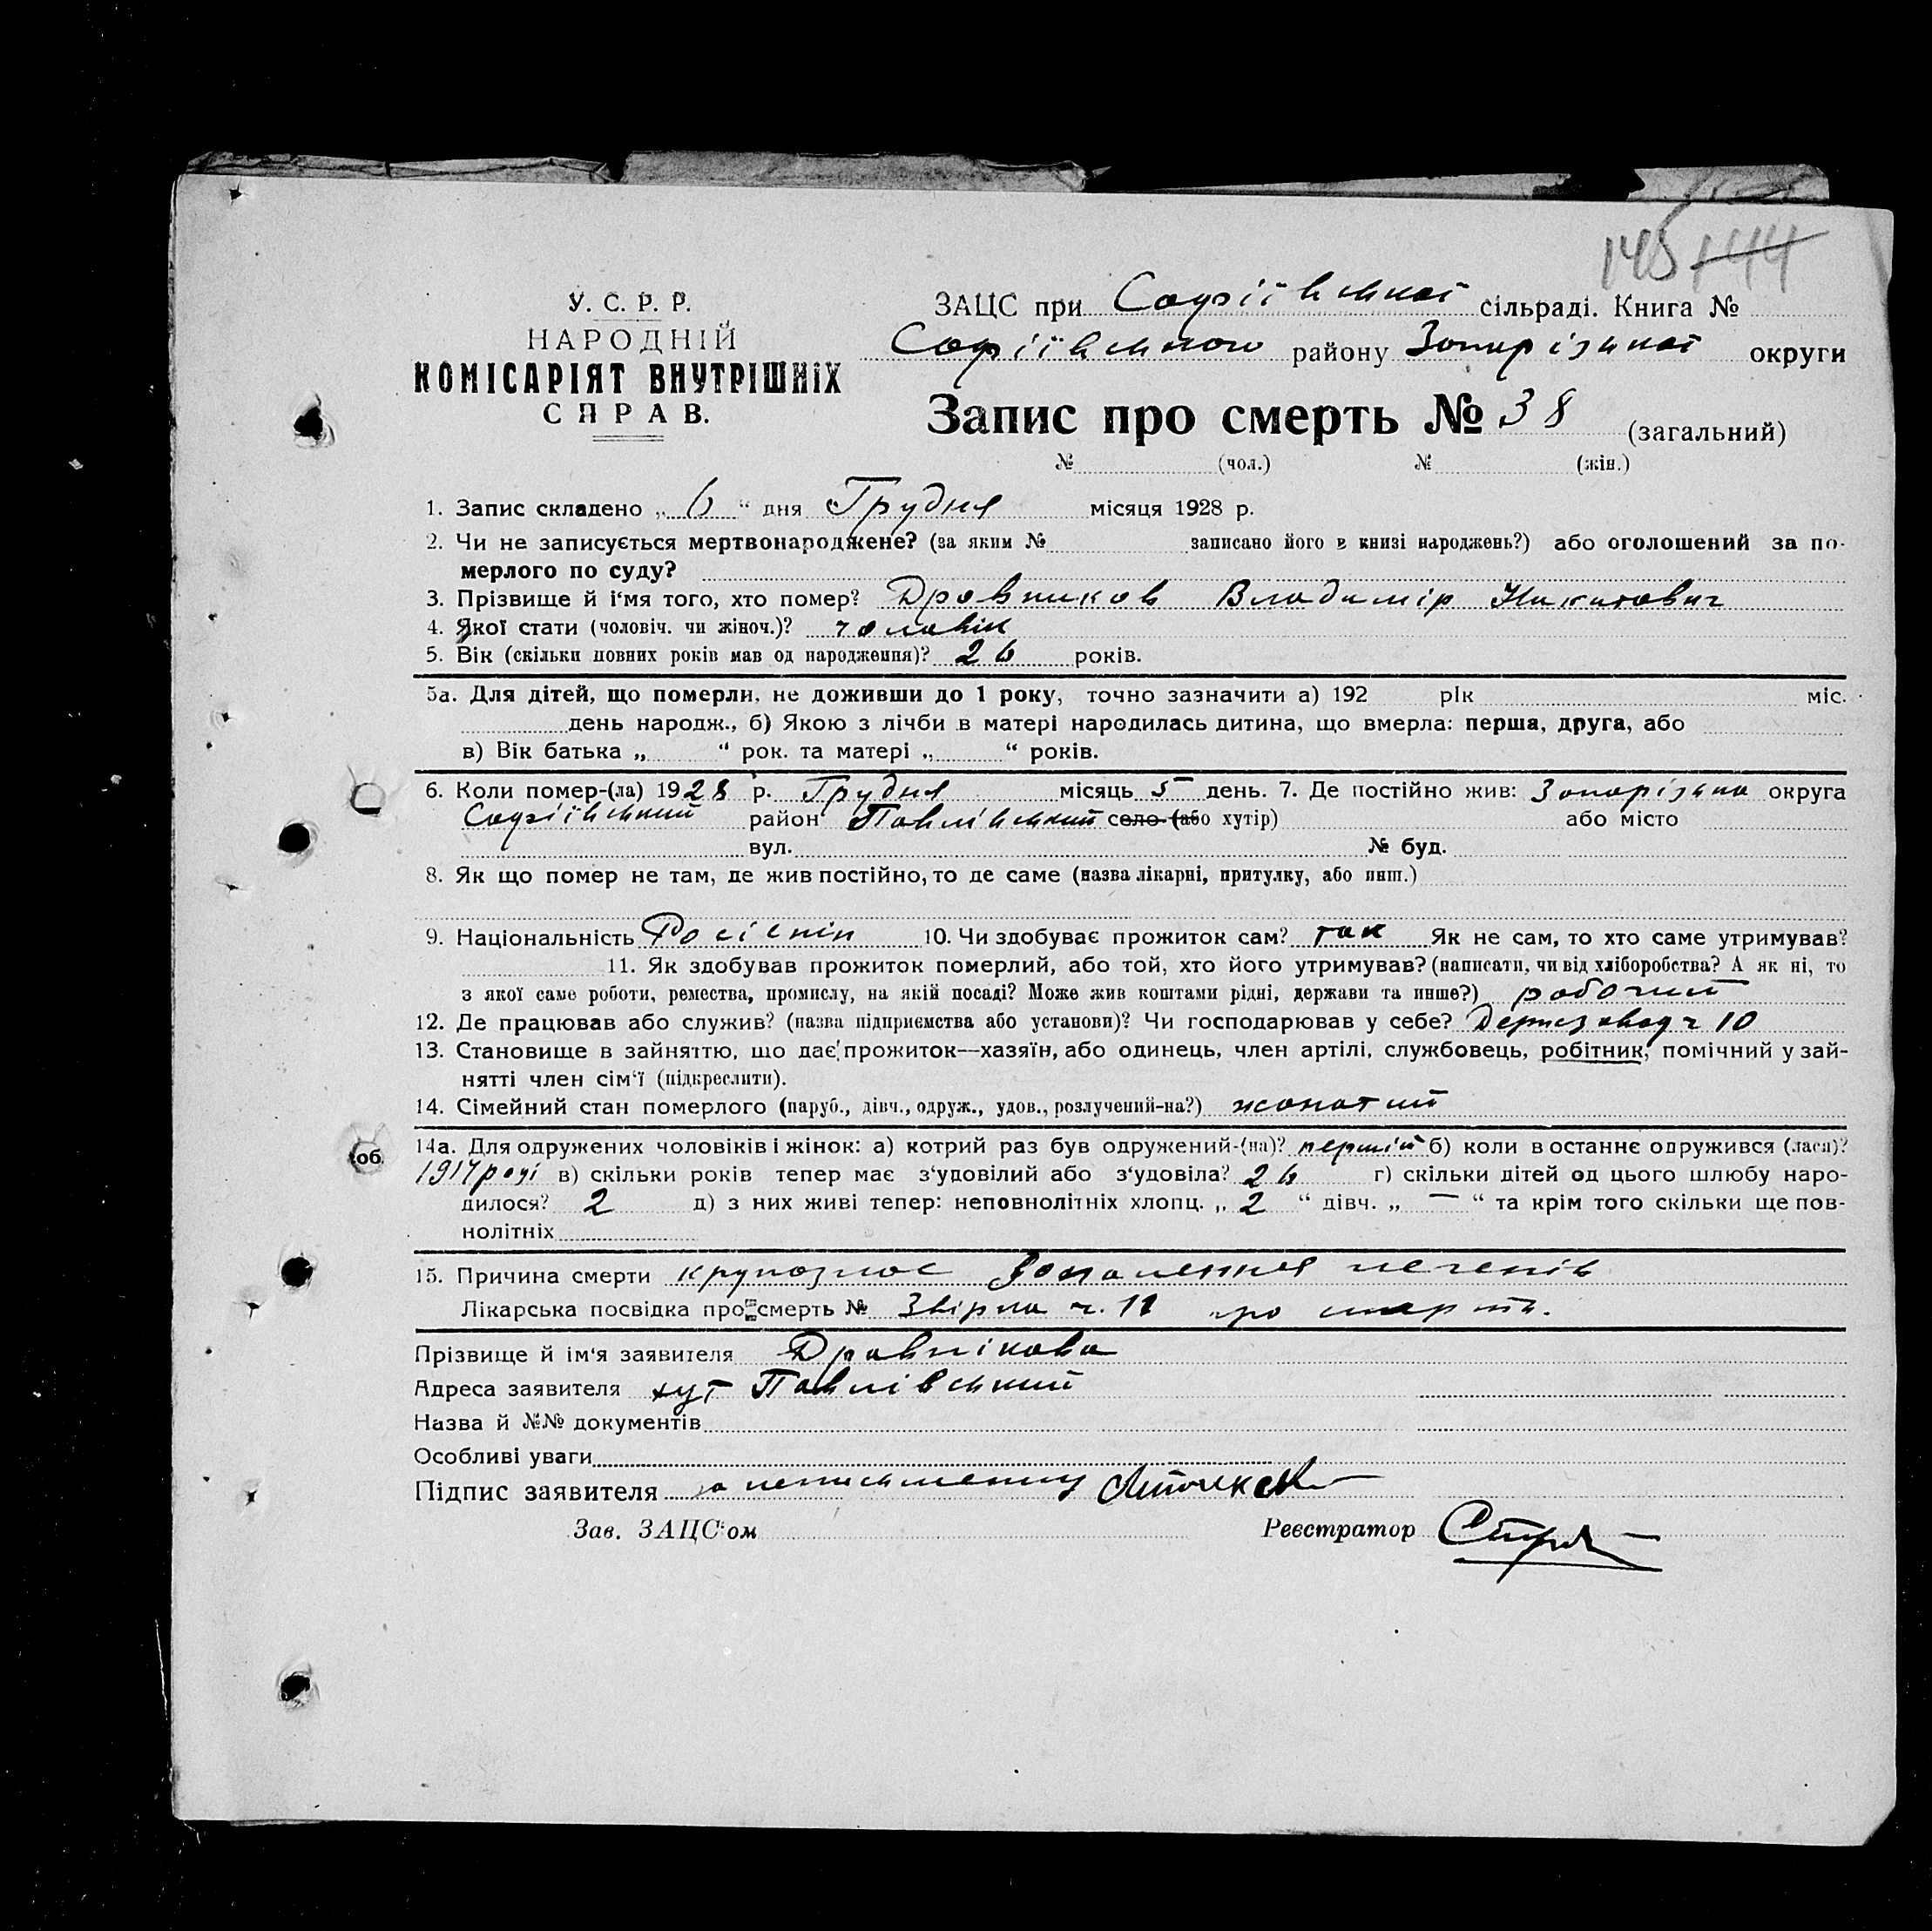 145 144
У. С. Р. Р.
НАРОДНІЙ
КОМІСАРІЯТ ВНУТРІШНІХ
СПРАВ.
ЗАЦС при Софіївській сільраді. Книга №
Софіївського району Запорізької округи
Запис про смерть № 38 (загальний)
№ (чол.) № (жін.)
1. Запис складено „ 6 “ дня Грудня місяця 1928 р.
2. Чи не записується мертвонароджене? (за яким № записано його в книзі народжень?) або оголошений за по-
мерлого по суду?
3. Прізвище й і'мя того, хто помер? Дровников Владимір Никитович
4. Якої стати (чоловіч. чи жіноч.)? чоловік
5. Вік (скільки повних років мав од народження)? 26 років.
5а. Для дітей, що померли, не доживши до 1 року, точно зазначити а) 192 рік міс.
день народж., б) Якою з лічби в матері народилась дитина, що вмерла: перша, друга, або
в) Вік батька „ “ рок. та матері „ “ років.
6. Коли помер-(ла) 1928 р. Грудня місяць 5 день. 7. Де постійно жив: Запорізька округа
Софіївський район Павлівський село (або хутір) або місто
вул. № буд.
8. Як що помер не там, де жив постійно, то де саме (назва лікарні, притулку, або инш.)
9. Національність Росіянін 10. Чи здобуває прожиток сам? так Як не сам, то хто саме утримував?
11. Як здобував прожиток померлий, або той, хто його утримував? (написати, чи від хліборобства? А як ні, то
з якої саме роботи, ремества, промислу, на якій посаді? Може жив коштами рідні, держави та инше?) рабочий
12. Де працював або служив? (назва підприємства або установи)? Чи господарював у себе? Держзавод ч 10
13. Становище в зайняттю, що дає прожиток—хазяїн, або одинець, член артілі, службовець, робітник, помічний у зай-
нятті член сім'ї (підкреслити).
14. Сімейний стан померлого (паруб., дівч., одруж., удов., розлучений-на?) жонатий
14а. Для одружених чоловіків і жінок: а) котрий раз був одружений-(на)? перший б) коли востаннє одружився (лася)?
1917 році в) скільки років тепер має з'удовілий або з'удовіла? 26 г) скільки дітей од цього шлюбу наро-
дилося? 2 д) з них живі тепер: неповнолітніх хлопц. „ 2 “ дівч. „ — “ та крім того скільки ще пов-
нолітніх
15. Причина смерти крупозное запалення легенів
Лікарська посвідка про смерть № Звірка ч. 11 про смерть.
Прізвище й ім'я заявителя Дровнікова
Адреса заявителя хут Павлівський
Назва й №№ документів
Особливі уваги
Підпис заявителя за неписьменну
Зав. ЗАЦС'ом Реєстратор
об